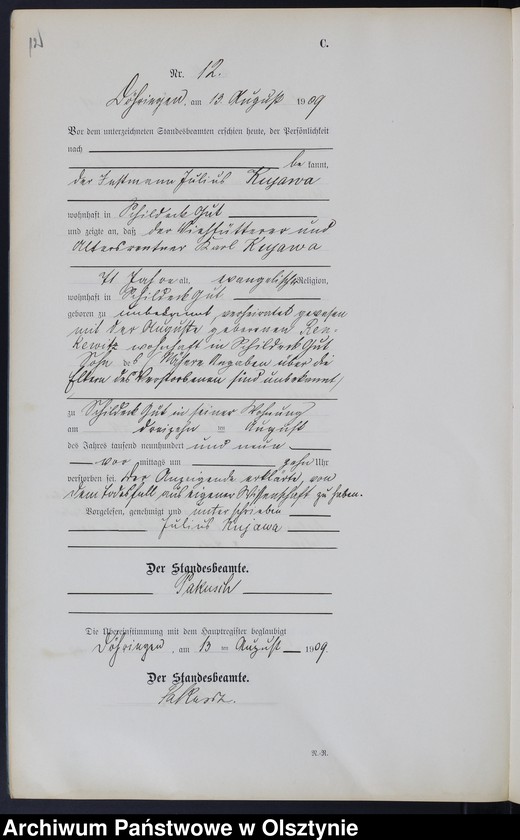 C.
Nr. 12.
Döhringen, am 13 August 1909
Vor dem unterzeichneten Standesbeamten erschien heute, der Persönlichkeit
nach
bekannt,
der Instmann Julius Kujawa
wohnhaft in Schildeck Gut
und zeigte an, daß der Viehfütterer und
Altersrentner Karl Kujawa
71 Jahre alt, evangelischer Religion,
wohnhaft in Schildeck Gut
geboren zu unbekannt verheiratet gewesen
mit der Auguste geborenen Ren-
kewitz wohnhaft in Schildeck Gut
Sohn des Nähere Angaben über die
Eltern des Verstorbenen sind unbekannt,
zu Schildeck Gut in seiner Wohnung
am dreizehn ten August
des Jahres tausend neunhundert und neun
vor mittags um zehn Uhr
verstorben sei. Der Anzeigende erklärte, von
dem Todesfall aus eigener Wissenschaft zu haben.
Vorgelesen, genehmigt und unterschrieben
Julius Kujawa
Der Standesbeamte.
Die Übereinstimmung mit dem Hauptregister beglaubigt
Döhringen, am 13 ten August 1909.
Der Standesbeamte.
N.-R.
Archiwum Państwowe w Olsztynie